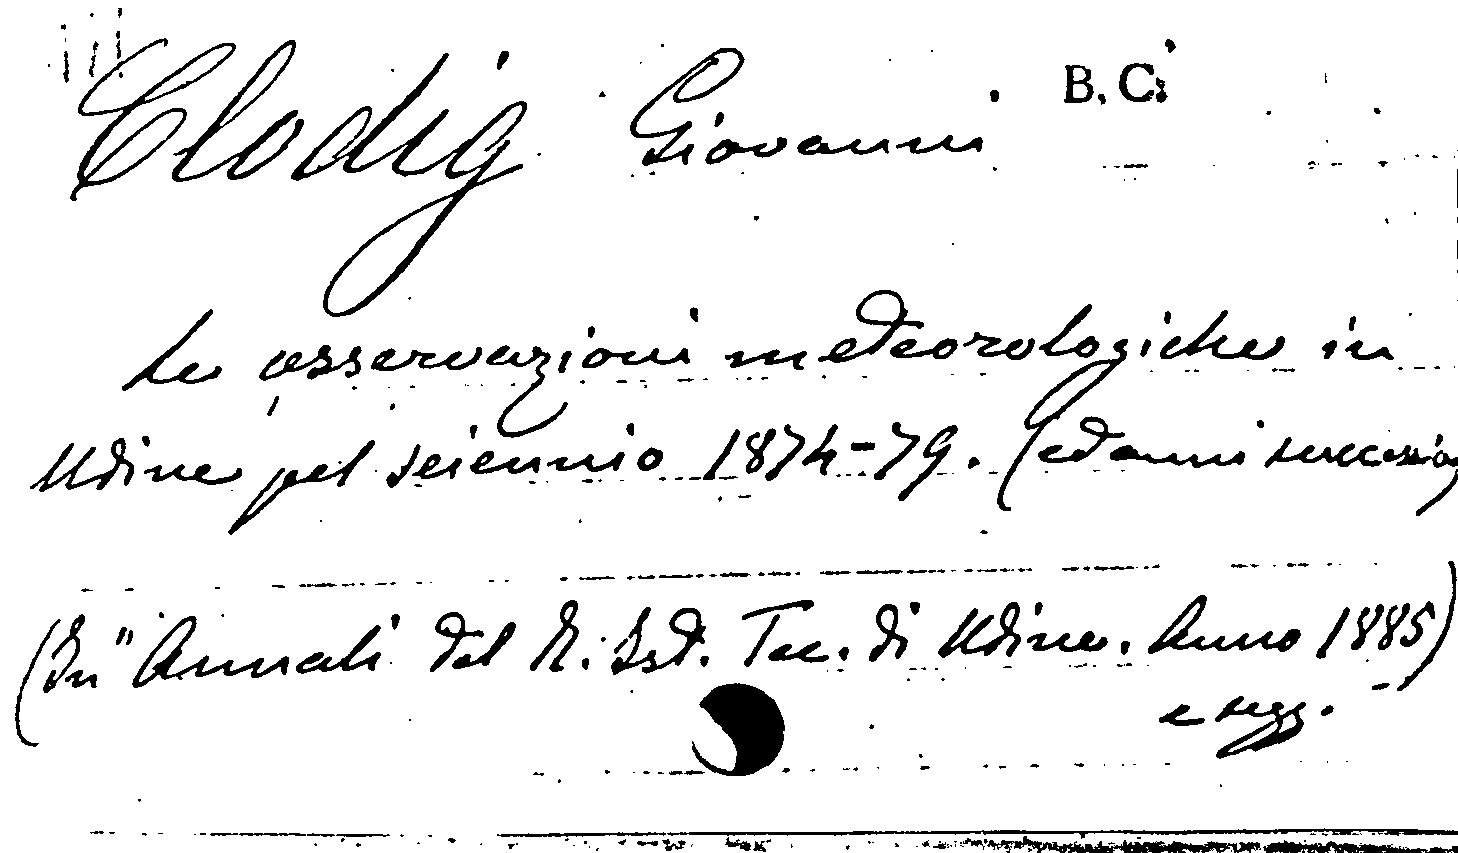 Clodig Giovanni. B. C.
Le osservazioni meteorologiche in
Udine pel seiennio 1874-79. (ed anni successivi)
(In "Annali del R. Ist. Tec. di Udine. Anno 1885)
e segg.